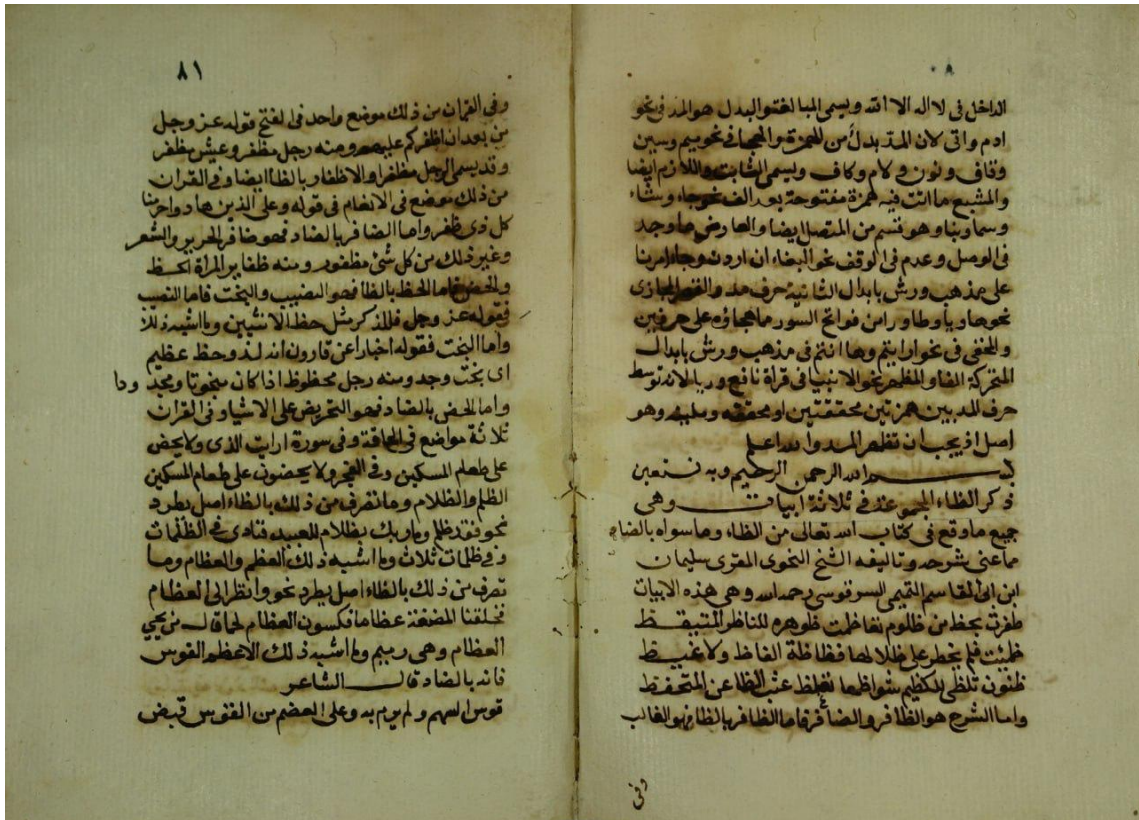 ٨٠
الداخل فى لا اله الا الله ويسمى المبالغة والبدل هو المد فى نحو
ادم واتى لان المد بدلا من الهمزة والهجا فى نحو ميم وسين
وقاف ونون ولام وكاف ويسمى الثابت واللازم ايضا
والمشبع ما اتت فيه همزة مفتوحة بعد الف نحو جاء وشاء
وسماء وبناء وهو قسم من المتصل ايضا والعارض ما وجد
فى الوصل وعدم فى الوقف نحو البغاء ان اردن وجاء امرنا
على مذهب ورش بابدال الثانية حرف مد والقصر المجازى
نحوها ويا وطا ورا من فواتح السور ما هجاؤه على حرفين
والمخفى فى نحو ارايتم وها انتم فى مذهب ورش بابدال
المتحركة الفا والمظهر نحو الانبيا فى قراة نافع وريا لانه توسط
حرف المد بين همزتين محققتين او محققة ومليينه وهو
اصل اذ يجب ان تظهر المد والله اعلم
بسم الله الرحمن الرحيم وبه نستعين
ذكر الظاء المجموعة فى ثلاثة ابيات وهى
جميع ما وقع فى كتاب الله تعالى من الظاء وما سواه بالضاد
ما عنى بشرحه وتاليفه الشيخ النحوى المقرى سليمان
ابن ابى القاسم التميمى السرقوسى رحمه الله وهى هذه الابيات
ظفرت بحظ من ظلوم تعاظمت ظلوهره للناظر المتيقظ
ظمئت فلم يخطر على ظلالها فظاظة الفاظ ولا غيظ
ظنون تلظى للكظيم شواظها تغلظ عنب الظا عن المتحفظ
واما الشرح هو الظافر والضافر فاما الظافر بالظا فهو الغالب
وفى
٨١
وفى القران من ذلك موضع واحد فى الفتح قوله عز وجل
من بعد ان اظفركم عليهم ومنه رجل مظفر وعيش مظفر
وقد يسمى الرجل مظفرا والاظفار بالظا ايضا وفى القران
من ذلك موضع فى الانعام فى قوله وعلى الذين هادوا حرمنا
كل ذى ظفر واما الضافر بالضاد فهو ضافر الحرير والشعر
وغير ذلك من كل شئ مظفور ومنه ظفاير المراة الحظ
والحض فاما الحظ بالظا فهو النصيب والبخت فاما النصيب
فقوله عز وجل فللذكر مثل حظ الانثيين وما اشبه ذلك
واما البخت فقوله اخبارا عن قارون انه لذو حظ عظيم
اى بخت وجد ومنه رجل محظوظ اذا كان مبخوتا ومجد ودا
واما الحض بالضاد فهو التحريض على الاشيا وفى القران
ثلاثة مواضع فى الحاقة وفى سورة ارايت الذى ولا يحض
على طعام المسكين وفى الفجر ولا يحضون على طعام المسكين
الظلم والظلام وما تفرف من ذلك بالظاء اصل يطرد
نحو فقد ظلم وما ربك بظلام للعبيد فنادى فى الظلمات
وفى ظلمات ثلاث وما اشبه ذلك العظم والعظام وما
تصرف من ذلك بالظاء اصل يطرد نحو وانظر الى العظام
فخلقنا المضغة عظاما فكسونا العظام لحما قال من يحيى
العظام وهى رميم وما اشبه ذلك الا عظم القوس
فانه بالضاد قال الشاعر
قوس السهم ولم يرم به وعلى العضم من القوس قبض